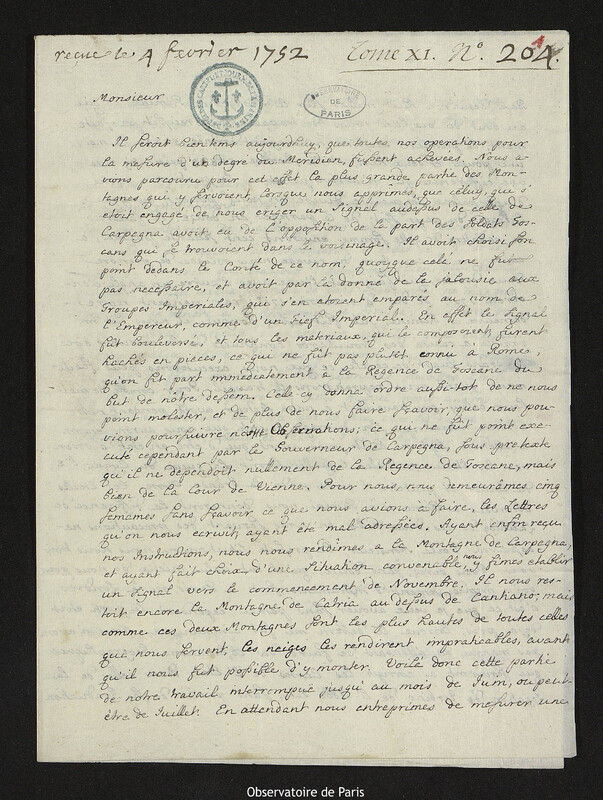 reçue le 4 fevrier 1752 Tome XI. N.º 204.
OBSERVATOIRE DE PARIS
Monsieur
Il seroit bientems aujourdhuy, que toutes nos operations pour
la mesure d'un degre du Meridien, fussent achevées. Nous a-
vions parcouru pour cet effet la plus grande partie des Mon-
tagnes qui y servoient, lorsque nous apprimes, que celuy, qui s'
etoit engagé de nous eriger un Signal audessus de celle de
Carpegna avoit eu de l'opposition de la part des Soldats Tos-
cans qui se trouvoient dans le voisinage. Il avoit choisi son
point dedans le Conté de ce nom, quoyque celà ne fut
pas necessaire, et avoit par là donné de la jalousie aux
Troupes Imperiales, qui s'en etoient emparés au nom de
l'Empereur, comme d'un Fief Imperial. En effet le Signal
fût bouleversé, et tous les materiaux, qui le composoient, furent
hachés en pieces; ce qui ne fût pas plûtôt connu à Rome,
qu'on fit part immédiatement à la Regence de Toscane du
but de nôtre dessein. Celle-cy donna ordre aussi-tot de ne nous
point molester, et de plus de nous faire sçavoir, que nous pou-
vions poursuivre nos Observations; ce qui ne fut point exe-
cuté cependant par le Gouverneur de Carpegna, sous pretexte
qu'il ne dependoit nullement de la Regence de Toscane, mais
bien de la Cour de Vienne. Pour nous, nous demeurâmes cinq
semaines sans sçavoir ce que nous avions à faire, les Lettres
qu'on nous ecrivit, ayant été mal adressées. Ayant enfin reçu
nos Instructions, nous nous rendîmes a la Montagne de Carpegna,
et ayant fait choix d'une situation convenable, nous y fimes etablir
un signal vers le commencement de Novembre. Il nous res-
toit encore la Montagne de Catria au dessus de Cantiano; mais
comme ces deux Montagnes sont les plus hautes de toutes celles
qui nous servent, les neiges les rendirent impraticables, avant
qu'il nous fut possible d'y monter. Voilà donc cette partie
de notre travail interrompüe jusqu'au mois de Juin, ou peut
être de Juillet. En attendant nous entreprimes de mesurer une
Observatoire de Paris